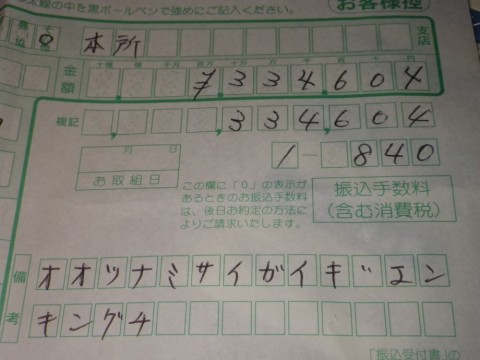 太線の中を黒ボールペンで強めにご記入ください。
お客様控
本所 支店
金額 十億 億 千万 百万 十万 万 千 百 十 円
¥334,604
複記 334,604
1-840
月 日
お取組日
この欄に「0」の表示が
あるときのお振込手数料
は、後日お約定の方法に
よりご請求いたします。
振込手数料
(含む消費税)
備考
オオツナミサイガイギエン
キングチ
「振込受付書」の